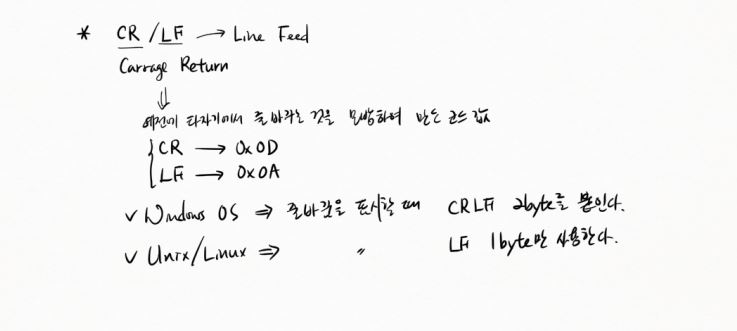 * CR / LF → Line Feed
Carrage Return
⇓
예전에 타자기에서 줄바꾸는 것을 모방하여 만든 코드 값
CR → 0x0D
LF → 0x0A
✓ Windows OS ⇒ 줄바꿈을 표시할 때 CRLF 2byte를 붙인다.
✓ Unix/Linux ⇒ 〃 LF 1byte만 사용한다.